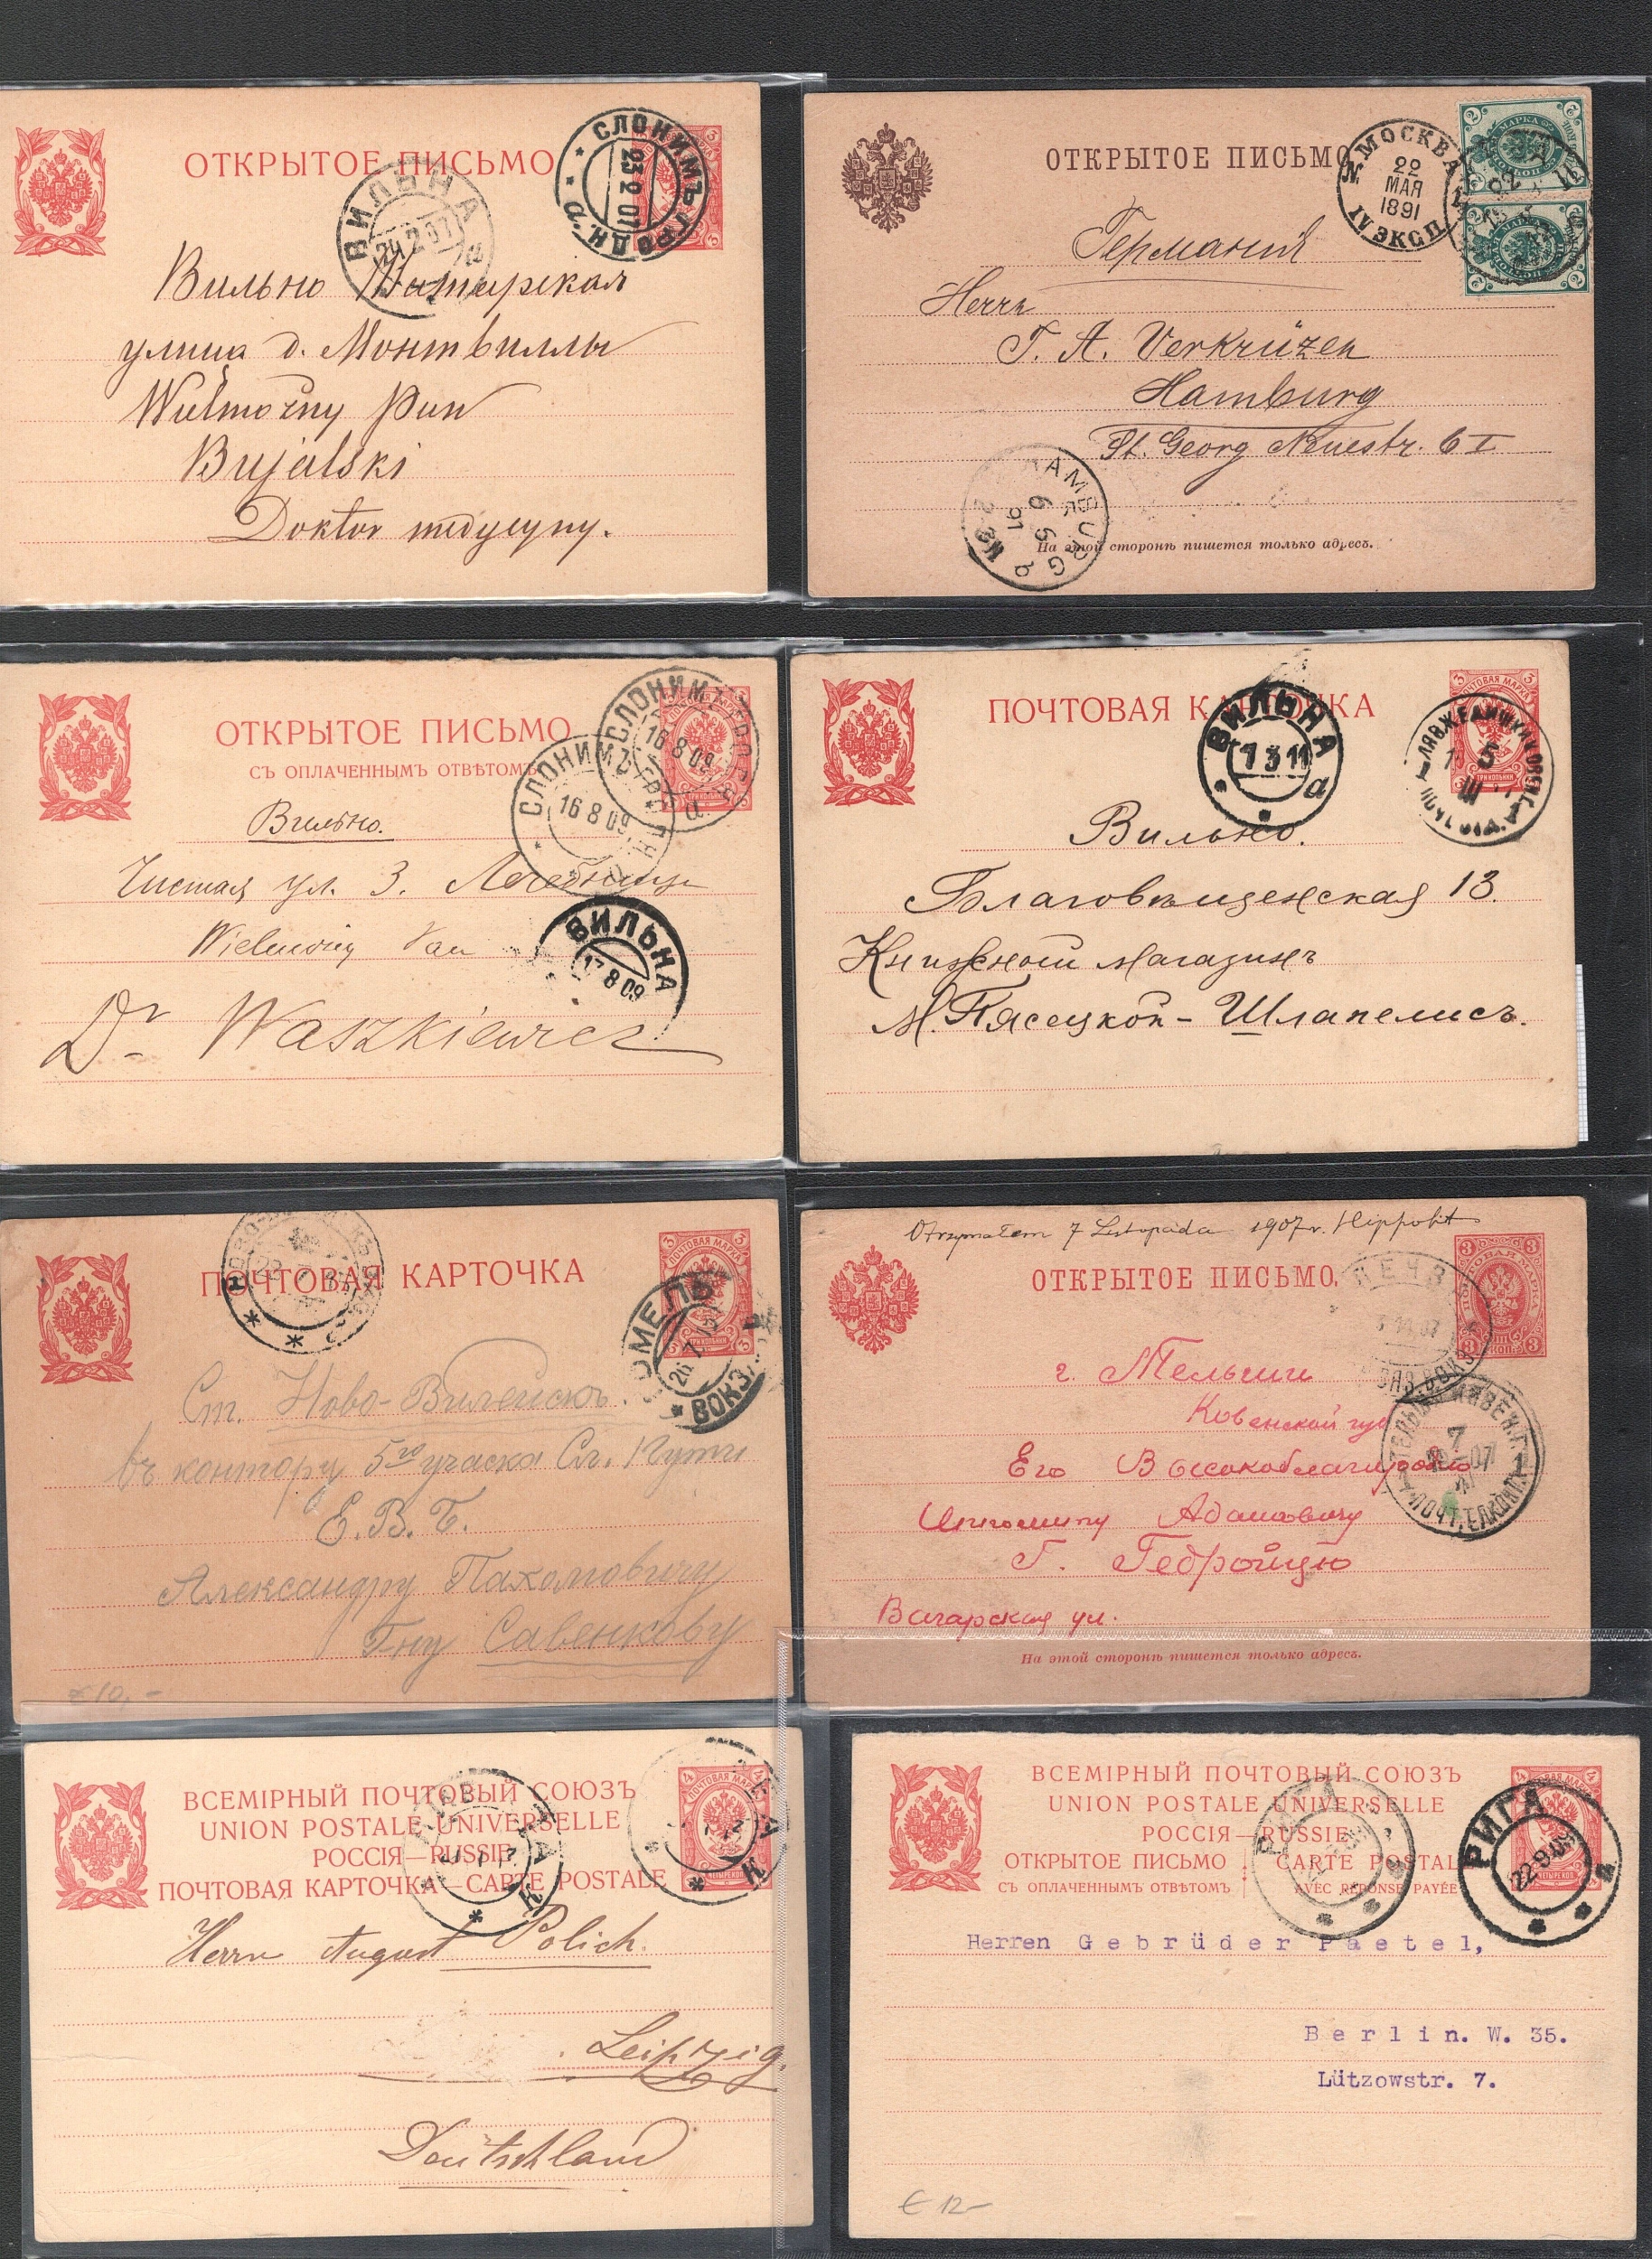 ОТКРЫТОЕ ПИСЬМО
СЛОНИМЪ ГРОДН.
23 2 07
а
ВИЛЬНА
24 2 07
Вильно
улица д. Монтвиллы
Wielmożny Pan
Bujalski
Doktor medycyny.
ОТКРЫТОЕ ПИСЬМО
МОСКВА
22
МАЯ
1891
IV ЭКСП
Германія
Herrn
T. A. Verkrüzen
Hamburg
St. Georg Neuestr. 6 I
HAMBURG
6 6
91
На этой сторонѣ пишется только адресъ.
ОТКРЫТОЕ ПИСЬМО
СЪ ОПЛАЧЕННЫМЪ ОТВѢТОМЪ
СЛОНИМЪ
16 8 09
СЛОНИМЪ
16 8 09
Вильно.
Чистая ул. 3. Лечебница
Wielmożny Pan
ВИЛЬНА
17 8 09
Dr Waszkiewicz
ПОЧТОВАЯ КАРТОЧКА
ПОЧТОВАЯ МАРКА
3
ТРИ КОПѢЙКИ
ВИЛЬНА
7 3 11
а
Вильно.
Благовѣщенская 13.
Книжной магазинъ
М. Пясецкой - Шлапелисъ.
ПОЧТОВАЯ КАРТОЧКА
ПОЧТОВАЯ МАРКА
3
ТРИ КОПѢЙКИ
ГОМЕЛЬ
26 7 12
ВОКЗ.
Ст. Ново-Вилейскъ.
въ контору 5го участка Сл. Пути
Е. В. Б.
Александру Пахомовичу
Гну Савенкову
€ 10,-
Otrzymałem 7 Listopada 1907 r. Hippolit
ОТКРЫТОЕ ПИСЬМО.
3
г. Тельши
Ковенской губ
Его Высокоблагородію
Ипполиту Адамовичу
Г. Гедройцю
ул.
ТЕЛЬШИ КОВЕН. Г.
7
07
ПОЧТ. ТЕЛ. КОНТ.
На этой сторонѣ пишется только адресъ.
ВСЕМІРНЫЙ ПОЧТОВЫЙ СОЮЗЪ
UNION POSTALE UNIVERSELLE
РОССІЯ—RUSSIE
ПОЧТОВАЯ КАРТОЧКА—CARTE POSTALE
ПОЧТОВАЯ МАРКА
4
Herrn August Polich.
Leipzig.
Deutschland
ВСЕМІРНЫЙ ПОЧТОВЫЙ СОЮЗЪ
UNION POSTALE UNIVERSELLE
РОССІЯ—RUSSIE
ОТКРЫТОЕ ПИСЬМО CARTE POSTALE
СЪ ОПЛАЧЕННЫМЪ ОТВѢТОМЪ AVEC RÉPONSE PAYÉE
РИГА
22 9 09
Herren Gebrüder Paetel,
Berlin. W. 35.
Lützowstr. 7.
€ 12-